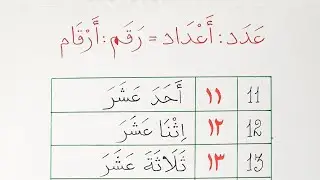 عَدَد: أَعْدَاد = رَقَم: أَرْقَام
11 ١١ أَحَدَ عَشَرَ
12 ١٢ اِثْنَا عَشَرَ
13 ١٣ ثَلَاثَةَ عَشَرَ